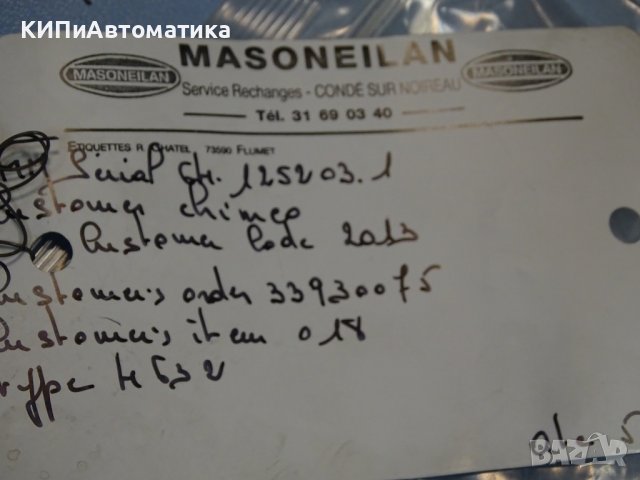 КИПиАвтоматика
MASONEILAN
MASONEILAN
MASONEILAN
Service Rechanges - CONDÉ SUR NOIREAU
Tél. 31 69 03 40
ETIQUETTES R. CHATEL 73590 FLUMET
Serial 125203.1
Customer Chimco
Customer Code 2013
Customer's order 33930075
Customer's item 018
type
BAZAR